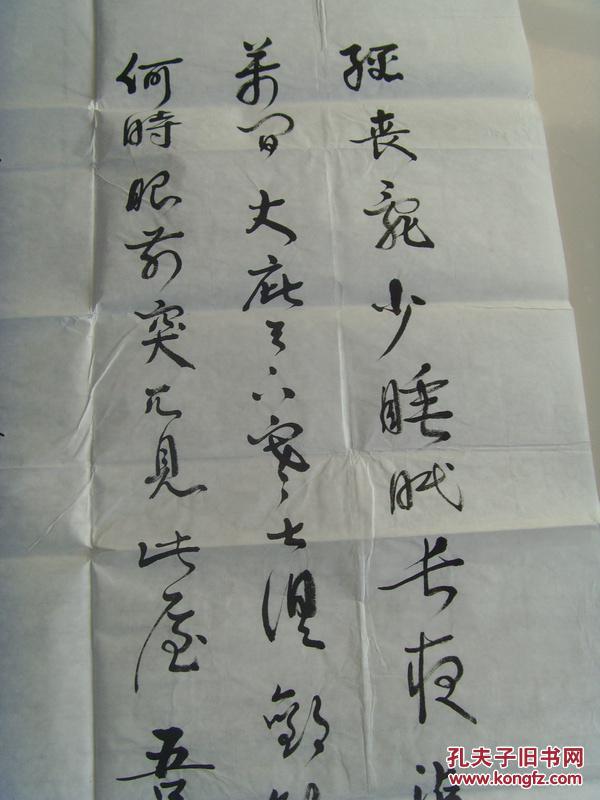 經喪亂少睡眠長夜沾
萬間大庇天下寒士俱歡
何時眼前突兀見此屋吾
孔夫子旧书网
www.kongfz.com